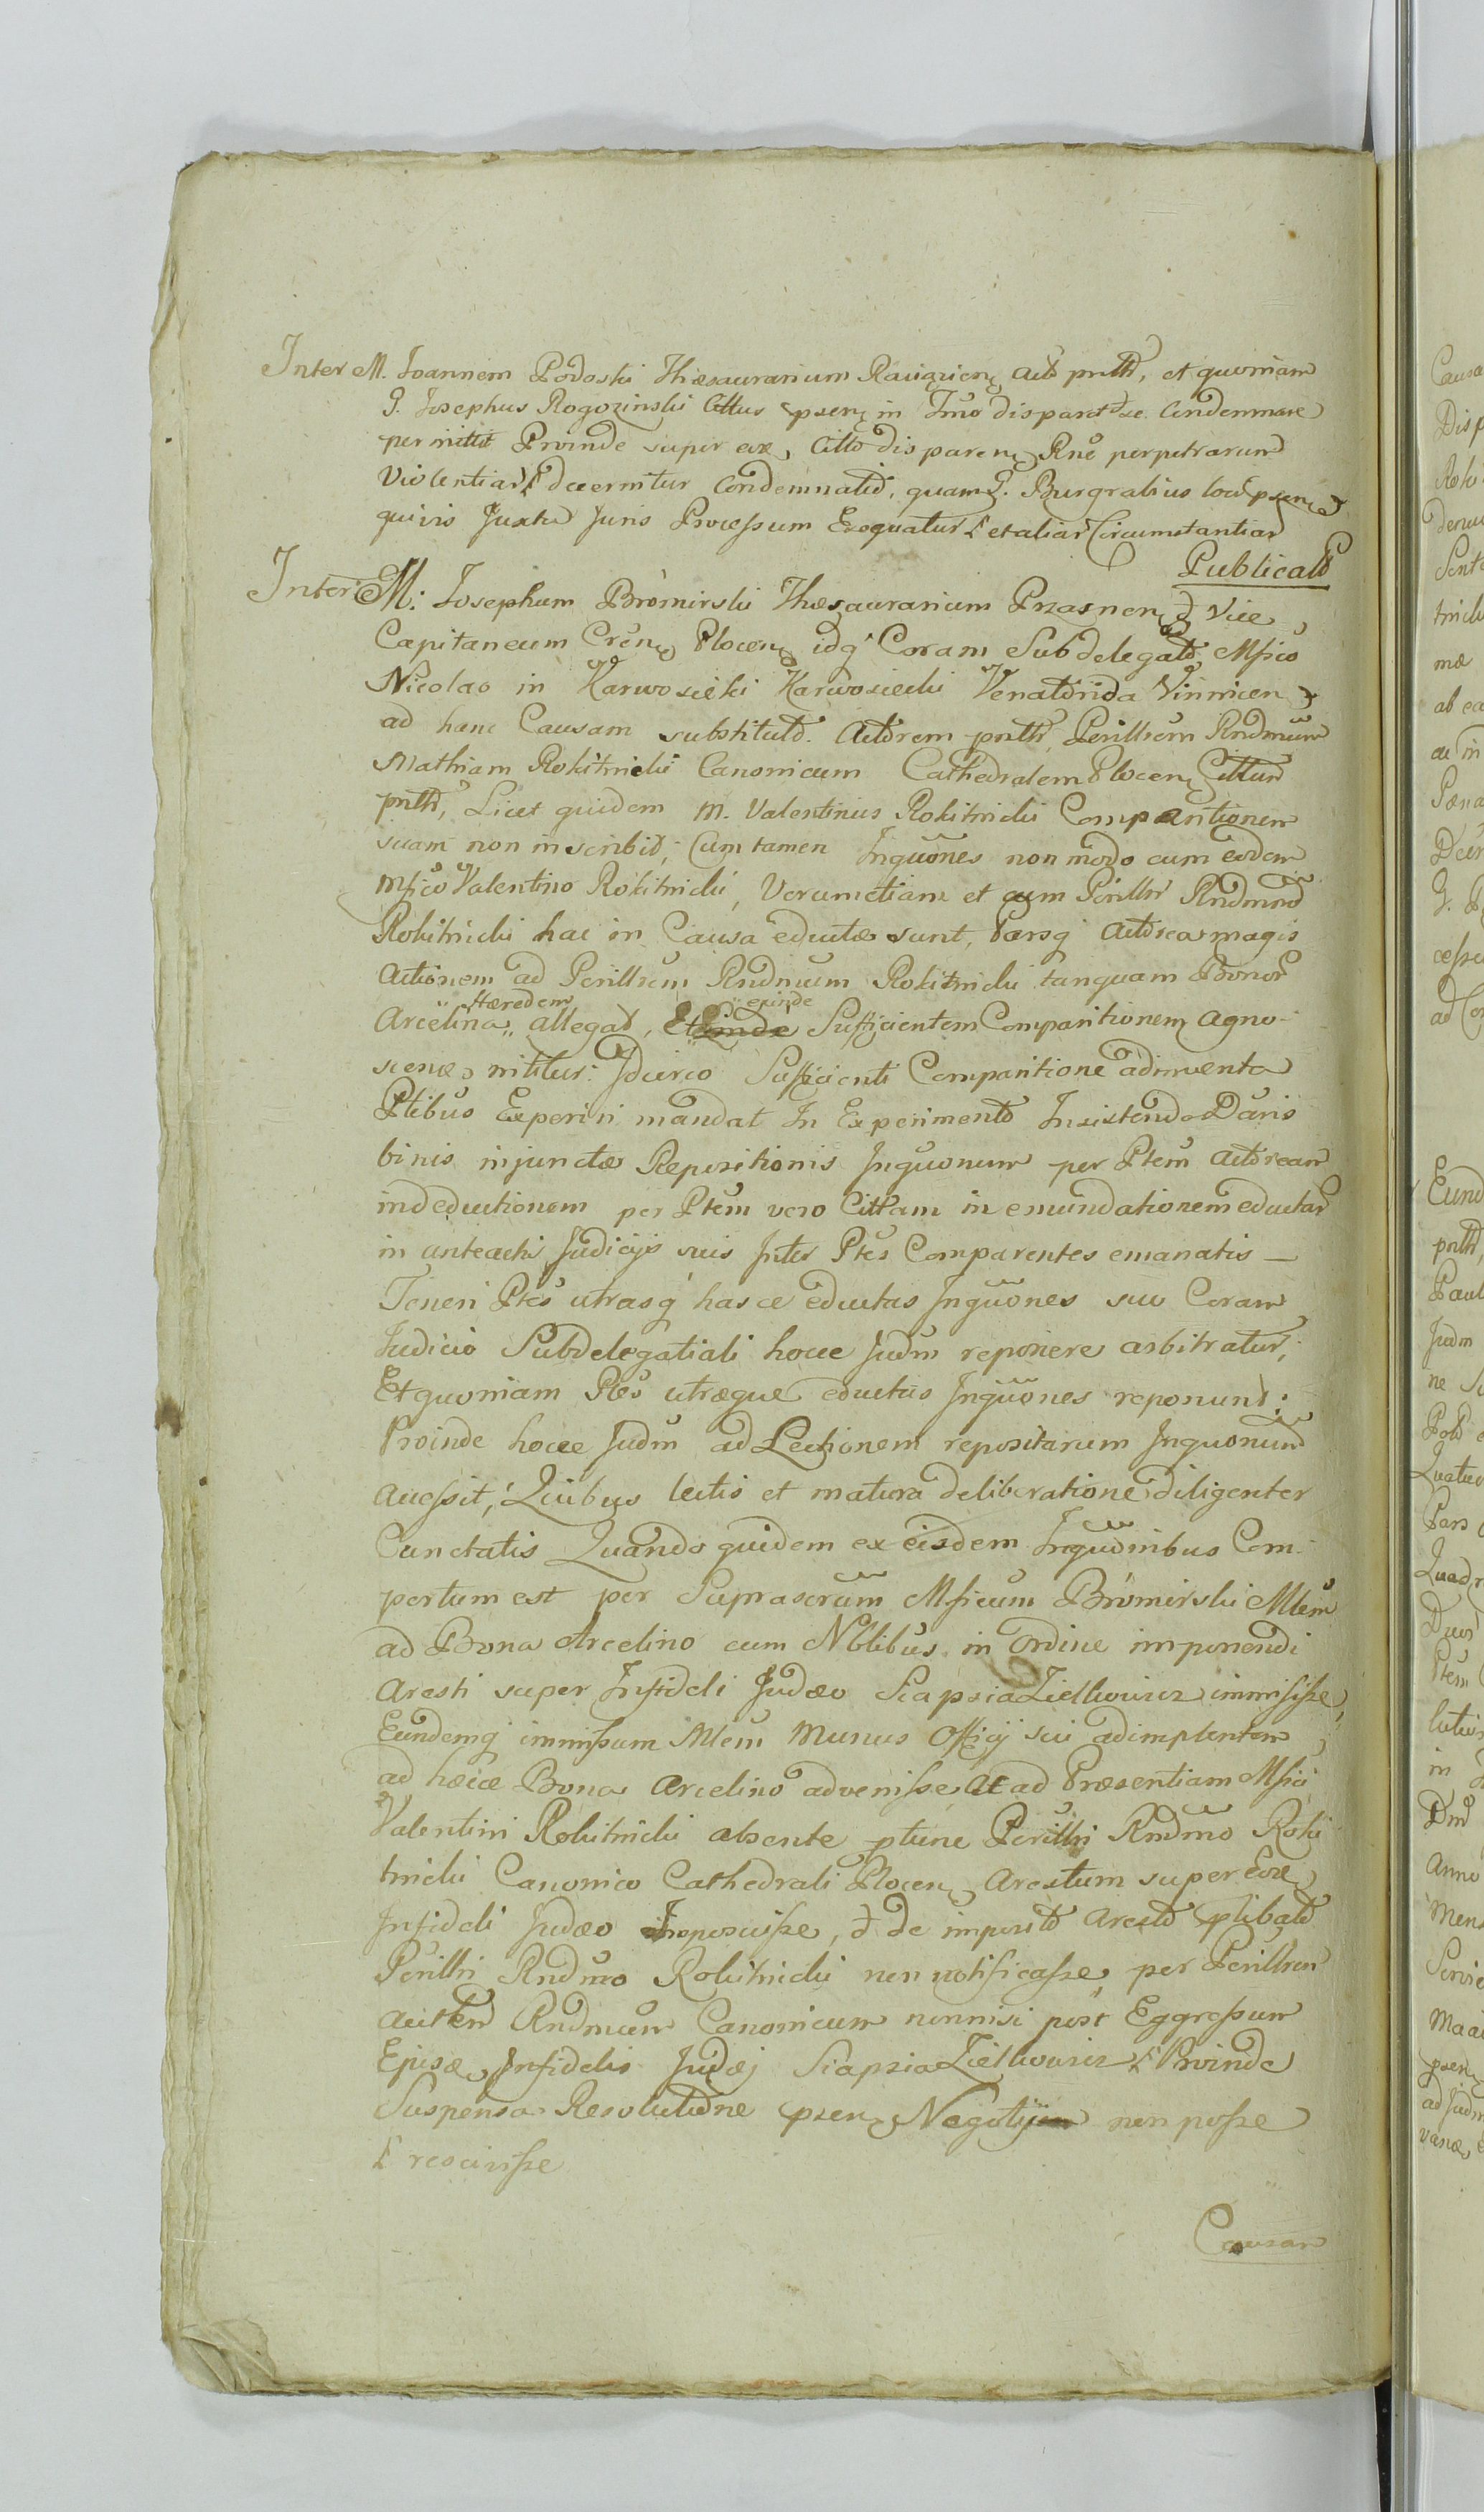 Inter M. Joannem Podoski Thesaurarium Ravizien Act prnth, et quoniam
G. Josephus Rogozinski Cittus psen in Trno disparet se Condemnare
permittit Proinde super eode Citto disparen Rne perpetrarum
Violentiar decernitur Condemnatio, quam G. Burgrabius loci psen
quivis Juxta Juris Processum Exequatur et aliar Circumstantiar
Publicato
Inter M. Josephum Bromirski Thesaurarium Przasnen & Vice
Capitaneum Cren Plocen idq Coram Subdelegato Mfico
Nicolao in Karwosieki Karwosiecki Venatorida Vinnicen
ad hanc Causam substituto Actorem prnth, Perillrem Rndmum
Mathiam Rokitnicki Canonicum Cathedralem Plocen Cittum
prnth, Licet quidem M. Valentinus Rokitnicki Comparitionem
suam non inscribit, Cum tamen Inquones non modo cum eodem
Mfico Valentino Rokitnicki, Verumetiam et cum Perillri Rndmno
Rokitnicki hac in Causa eductæ sunt, Parsq Actorea magis
Actionem ad Perillrem Rndmum Rokitnicki tanquam Bonor
Hæredem exinde
Arcelina allegat, Et Sufficientem Comparitionem agno-
scere nititur: Idcirco Sufficienti Comparitione adinventa
Ptibus Experiri mandat In Experimento Insistendo Duris
binis injunctæ Repositionis Inquonum per Ptem Actoream
indeductionem per Ptem vero Cittam in emundationem eductar
in anteacti Judicijs suis Inter Ptes Comparentes emanatis —
Teneri Ptes utrasq hasce eductas Inquones suo Coram
Judicio Subdelegatiali hocce Judm reponere arbitratur;
Et quoniam Ptes utræque eductas Inquones reponunt;
Proinde hocce Judm ad Lectionem repositarum Inquonum
accessit, Quibus lectis et matura deliberatione diligenter
Cunctatis Quando quidem ex eisdem Inquonibus Com-
pertum est per Suprascrum Mficum Bromirski Mlem
ad Bona Arcelino cum Nblibus in Ordine imponendi
Aresti super Infideli Judæo Sciapsia Zielkowicz immisisse,
Eundemq immissum Mlem Munus Officij sui adimplentem
ad hæcce Bona Arcelino advenisse Ac ad Præsentiam Mfici
Valentini Rokitnicki absente ptunc Perillri Rndmo Roki
tnicki Canonico Cathedrali Plocen Arestum super Eode
Infideli Judæo Imposuisse, & de imposito Aresto ptibato
Perillri Rndmo Rokitnicki non notificasse, per Perillrem
autem Rndmum Canonicum nonnisi post Eggressum
Ejusdem Infidelis Judæj Sciapsia Zielkowicz Proinde
Suspensa Resolutione psen Negotij non posse
rescivisse
Causam